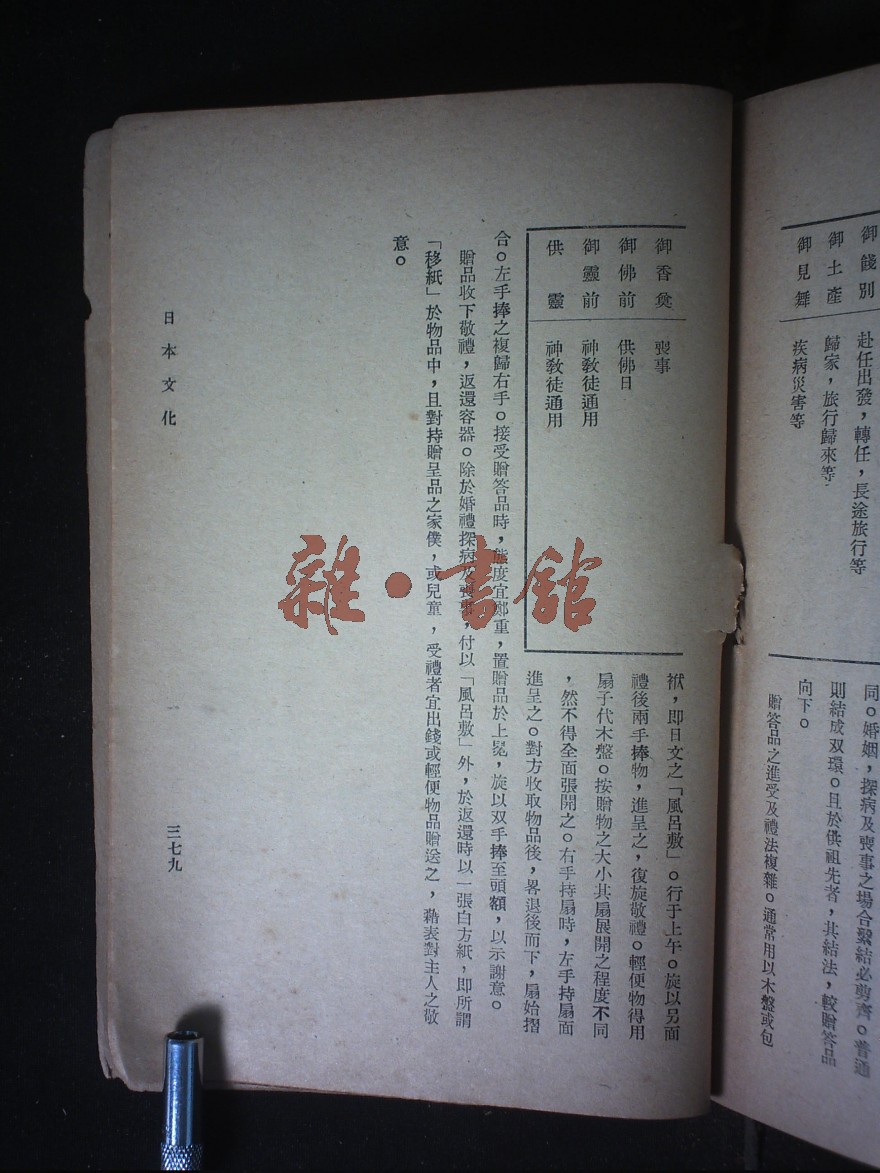 御餞別　赴任出發，轉任，長途旅行等
御土產　歸家，旅行歸來等
御見舞　疾病災害等
同。婚姻，探病及喪事之場合繫結必剪齊。普通
則結成双環。且於供祖先者，其結法，較贈答品
向下。
贈答品之進受及禮法複雜。通常用以木盤或包
御香奠　喪事
御佛前　供佛日
御靈前　神教徒通用
供靈　神教徒通用
袱，即日文之「風呂敷」。行于上午。旋以另面
禮後兩手捧物，進呈之，復旋敬禮。輕便物得用
扇子代木盤。按贈物之大小其扇展開之程度不同
，然不得全面張開之。右手持扇時，左手持扇面
進呈之。對方收取物品後，畧退後而下，扇始摺
合。左手捧之複歸右手。接受贈答品時，態度宜鄭重，置贈品於上晃，旋以双手捧至頭額，以示謝意。
贈品收下敬禮，返還容器。除於婚禮探病及喪事，付以「風呂敷」外，於返還時以一張白方紙，即所謂
「移紙」於物品中，且對持贈呈品之家僕，或兒童，受禮者宜出錢或輕便物品贈送之，藉表對主人之敬
意。
日本文化
三七九
雜·書館